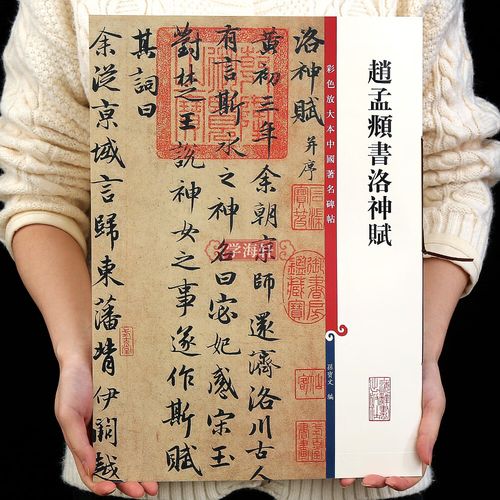 趙孟頫書洛神賦
彩色放大本中國著名碑帖
孫寶文 編
洛神賦 并序
黄初三年余朝京師還濟洛川古人
有言斯水之神名曰宓妃感宋玉
對楚王說神女之事遂作斯賦
其詞曰
余從京域言歸東藩背伊闕越
御書房鑑藏寶
学海轩